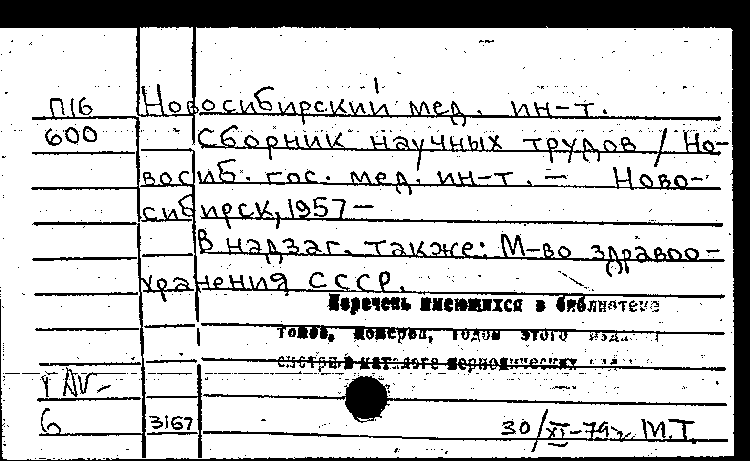 П16 Новосибирский мед. ин-т.
600 Сборник научных трудов / Но-
восиб. гос. мед. ин-т. — Ново-
сибирск, 1957—
В надзаг. также: М-во здравоо-
хранения СССР.
Перечень имеющихся в библиотеке
томов, номеров, годов этого издания
смотри в каталоге периодических
6 3167 30/XI-79г. М.Т.